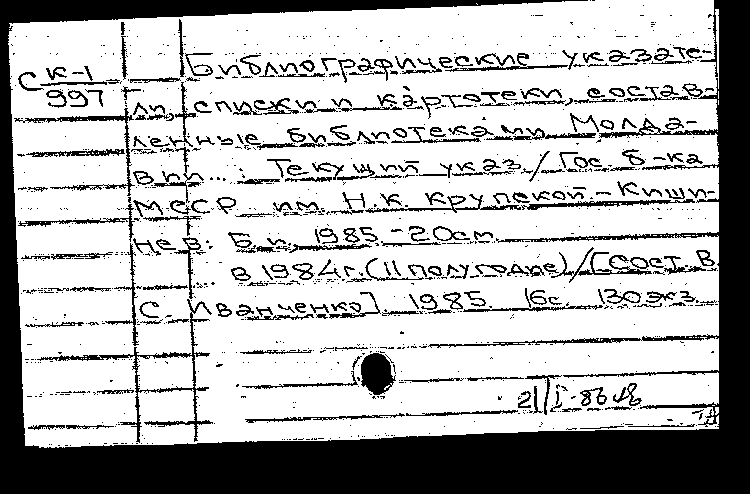 Библиографические указате-
С К-1
997
ли, списки и картотеки, состав-
ленные библиотеками Молда-
вии...: Текущий указ./Гос. б-ка
МССР им. Н.К. Крупской.-Киши-
нев: Б.и, 1985.-20см.
в 1984г.(II полугодие)/[Сост. В.
С. Иванченко]. 1985. 16с. 130экз.
21/I-86